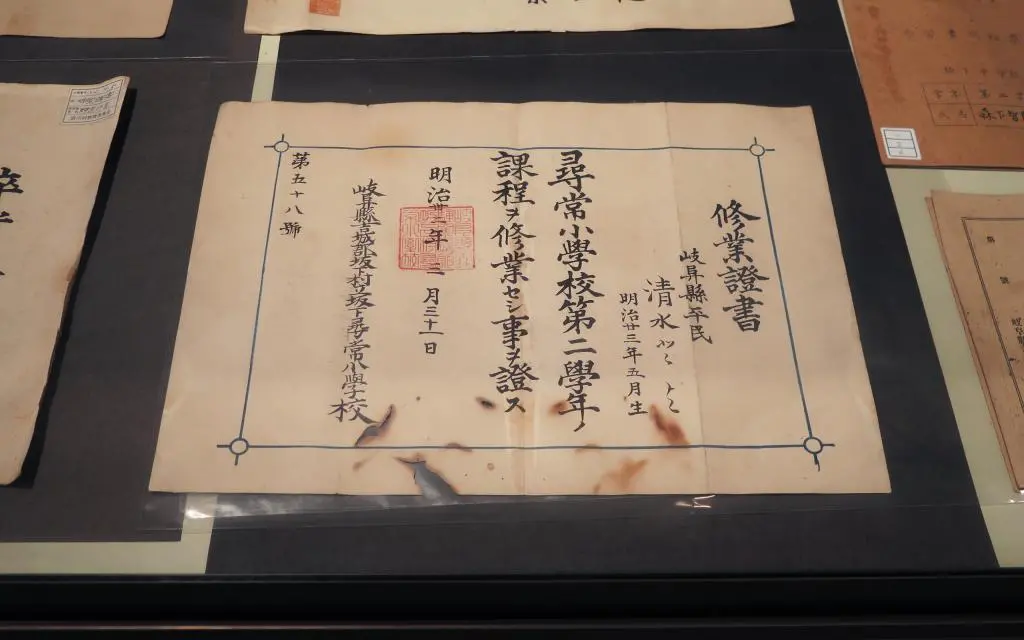 修業證書
岐阜縣平民
清水
明治廿三年五月生
尋常小學校第二學年ノ
課程ヲ修業セシ事ヲ證ス
明治卅二年三月三十一日
岐阜縣吉城郡坂下村立坂下尋常小學校
第五十八號